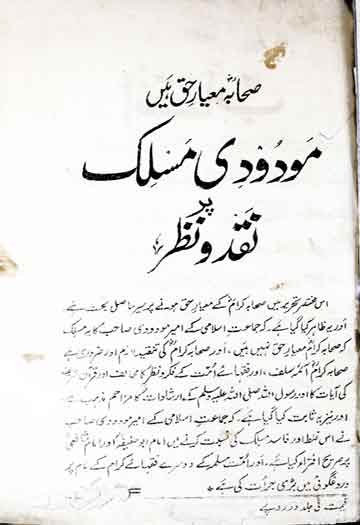 صحابہؓ معیارِ حق ہیں
مودودی مسلک
پر
نقد و نظر
اس مختصر تحریر میں صحابہ کرامؓ کے معیارِ حق ہونے پر سیر حاصل بحث ہے۔
اور یہ ظاہر کیا گیا ہے۔ کہ جماعت اسلامی کے امیر مودودی صاحب کا یہ مسلک
کہ صحابہ کرامؓ معیارِ حق نہیں ہیں، اور صحابہ کرامؓ کی تنقید لازم اور ضروری ہے
صحابہ کرامؓ ائمہ سلف، اور فقہائے اُمت کے فکر و نظر کا مخالف اور قرآن
کی آیات کا اور رسول اللہ صلی اللہ علیہ وسلم کے ارشادات کا مزاحم مذہب ہے
اور نیز یہ ثابت کیا گیا ہے۔ کہ جماعت اسلامی کے امیر مودودی صاحب
نے اس غلط اور فاسد مسلک کی نسبت کرنے میں امام ابوحنیفہؒ اور امام شافعیؒ
پر صریح افتراء کیا ہے۔ اور اُمت مسلمہ کے دوسرے فقہائے کرام کے نام پر
دروغگوئی میں بڑی جرأت کی ہے
قیمت فی جلد دو روپے